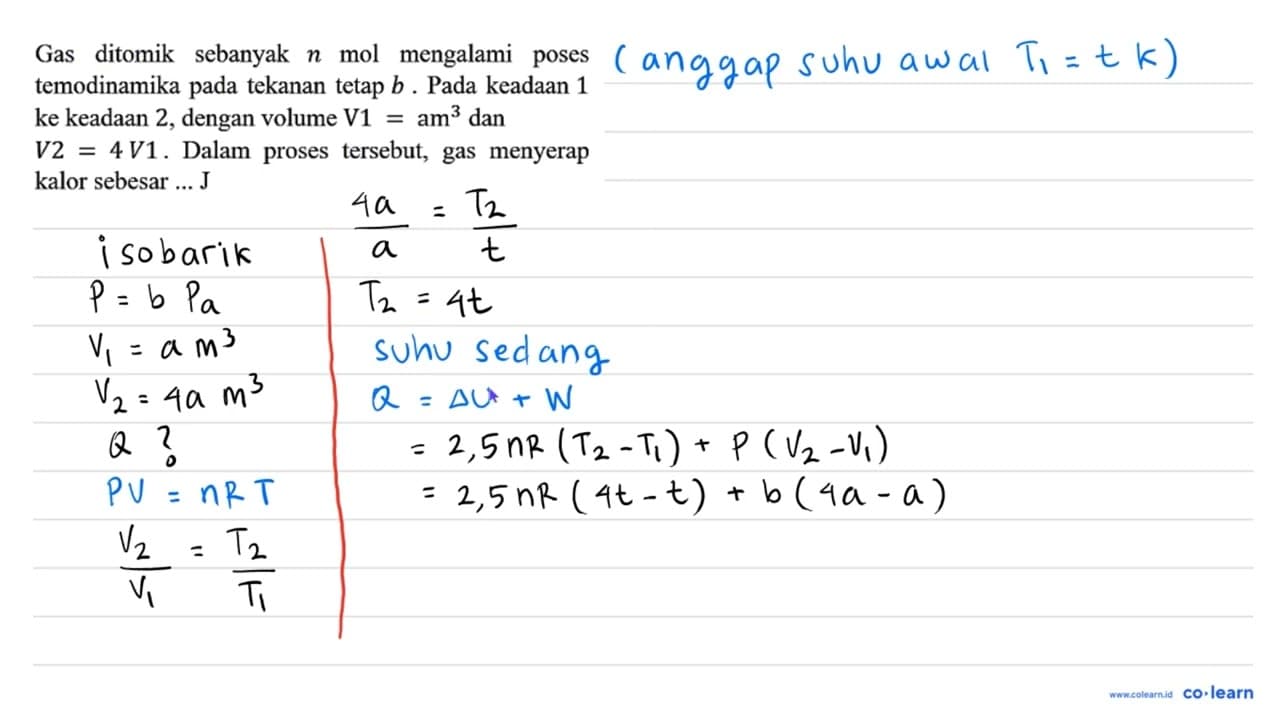 Gas ditomik sebanyak n mol mengalami poses
temodinamika pada tekanan tetap b . Pada keadaan 1
ke keadaan 2, dengan volume V1 = am³ dan
V2 = 4 V1 . Dalam proses tersebut, gas menyerap
kalor sebesar ... J
(anggap suhu awal T₁ = t k)
isobarik
P = b Pa
V₁ = a m³
V₂ = 4a m³
Q ?
PV = nRT
V₂/V₁ = T₂/T₁
4a/a = T₂/t
T₂ = 4t
suhu sedang
Q = ΔU + W
= 2,5 nR (T₂ - T₁) + P (V₂ - V₁)
= 2,5 nR (4t - t) + b (4a - a)
www.colearn.id co·learn